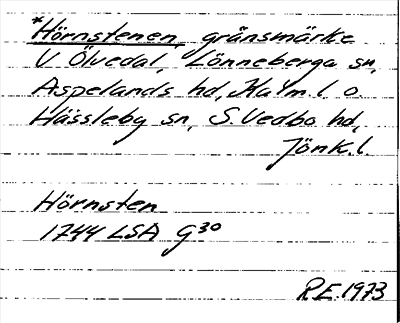 *Hörnstenen, gränsmärke
V. Ölvedal, Lönneberga sn,
Aspelands hd, Kalm.l. o.
Hässleby sn, S. Vedbo hd,
Jönk.l.
Hörnsten
1744 LSA G30
R.E. 1973